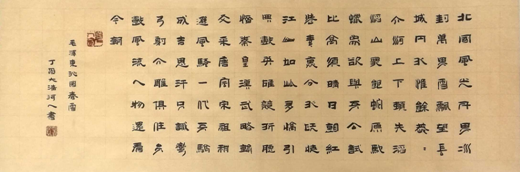 北國風光千里冰
封萬里雪飄望長
城内外惟餘莽莽
大河上下頓失滔
滔山舞銀蛇原馳
蠟象欲與天公試
比高須晴日看紅
裝素裹分外妖嬈
江山如此多嬌引
無數英雄競折腰
惜秦皇漢武略輸
文采唐宗宋祖稍
遜風騷一代天驕
成吉思汗只識彎
弓射大雕俱往矣
數風流人物還看
今朝
毛澤東沁園春雪
丁酉大清河人書